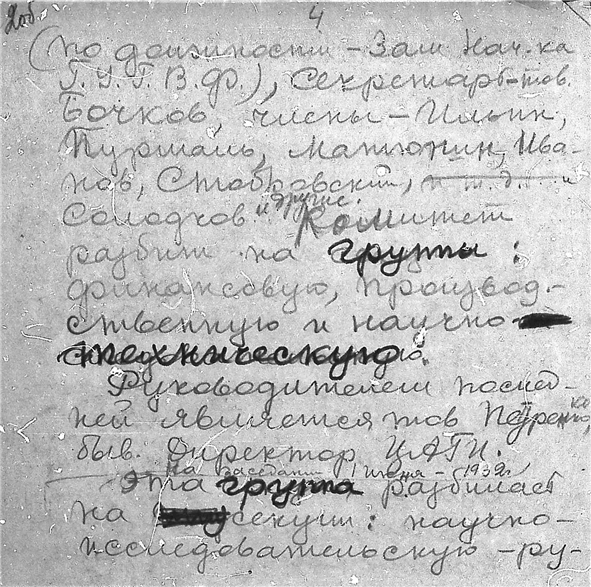 Доб. 4
(по должности – Зам Нач.ка
Г.У.Г.В.Ф.), секретарь – тов.
Бочков, члены – Ильин,
Пурталь, Матюнин, Ива-
нов, Стобровский, и т.д. и
Солодков и другие. Комитет
разбит на группы:
финансовую, производ-
ственную и научно-
техническую.
Руководителем послед-
ней является тов Петренко,
быв. Директор ЦАГИ.
На заседании 1 июня – 1932г
Эта группа разбилась
на секции: научно-
исследовательскую – ру-